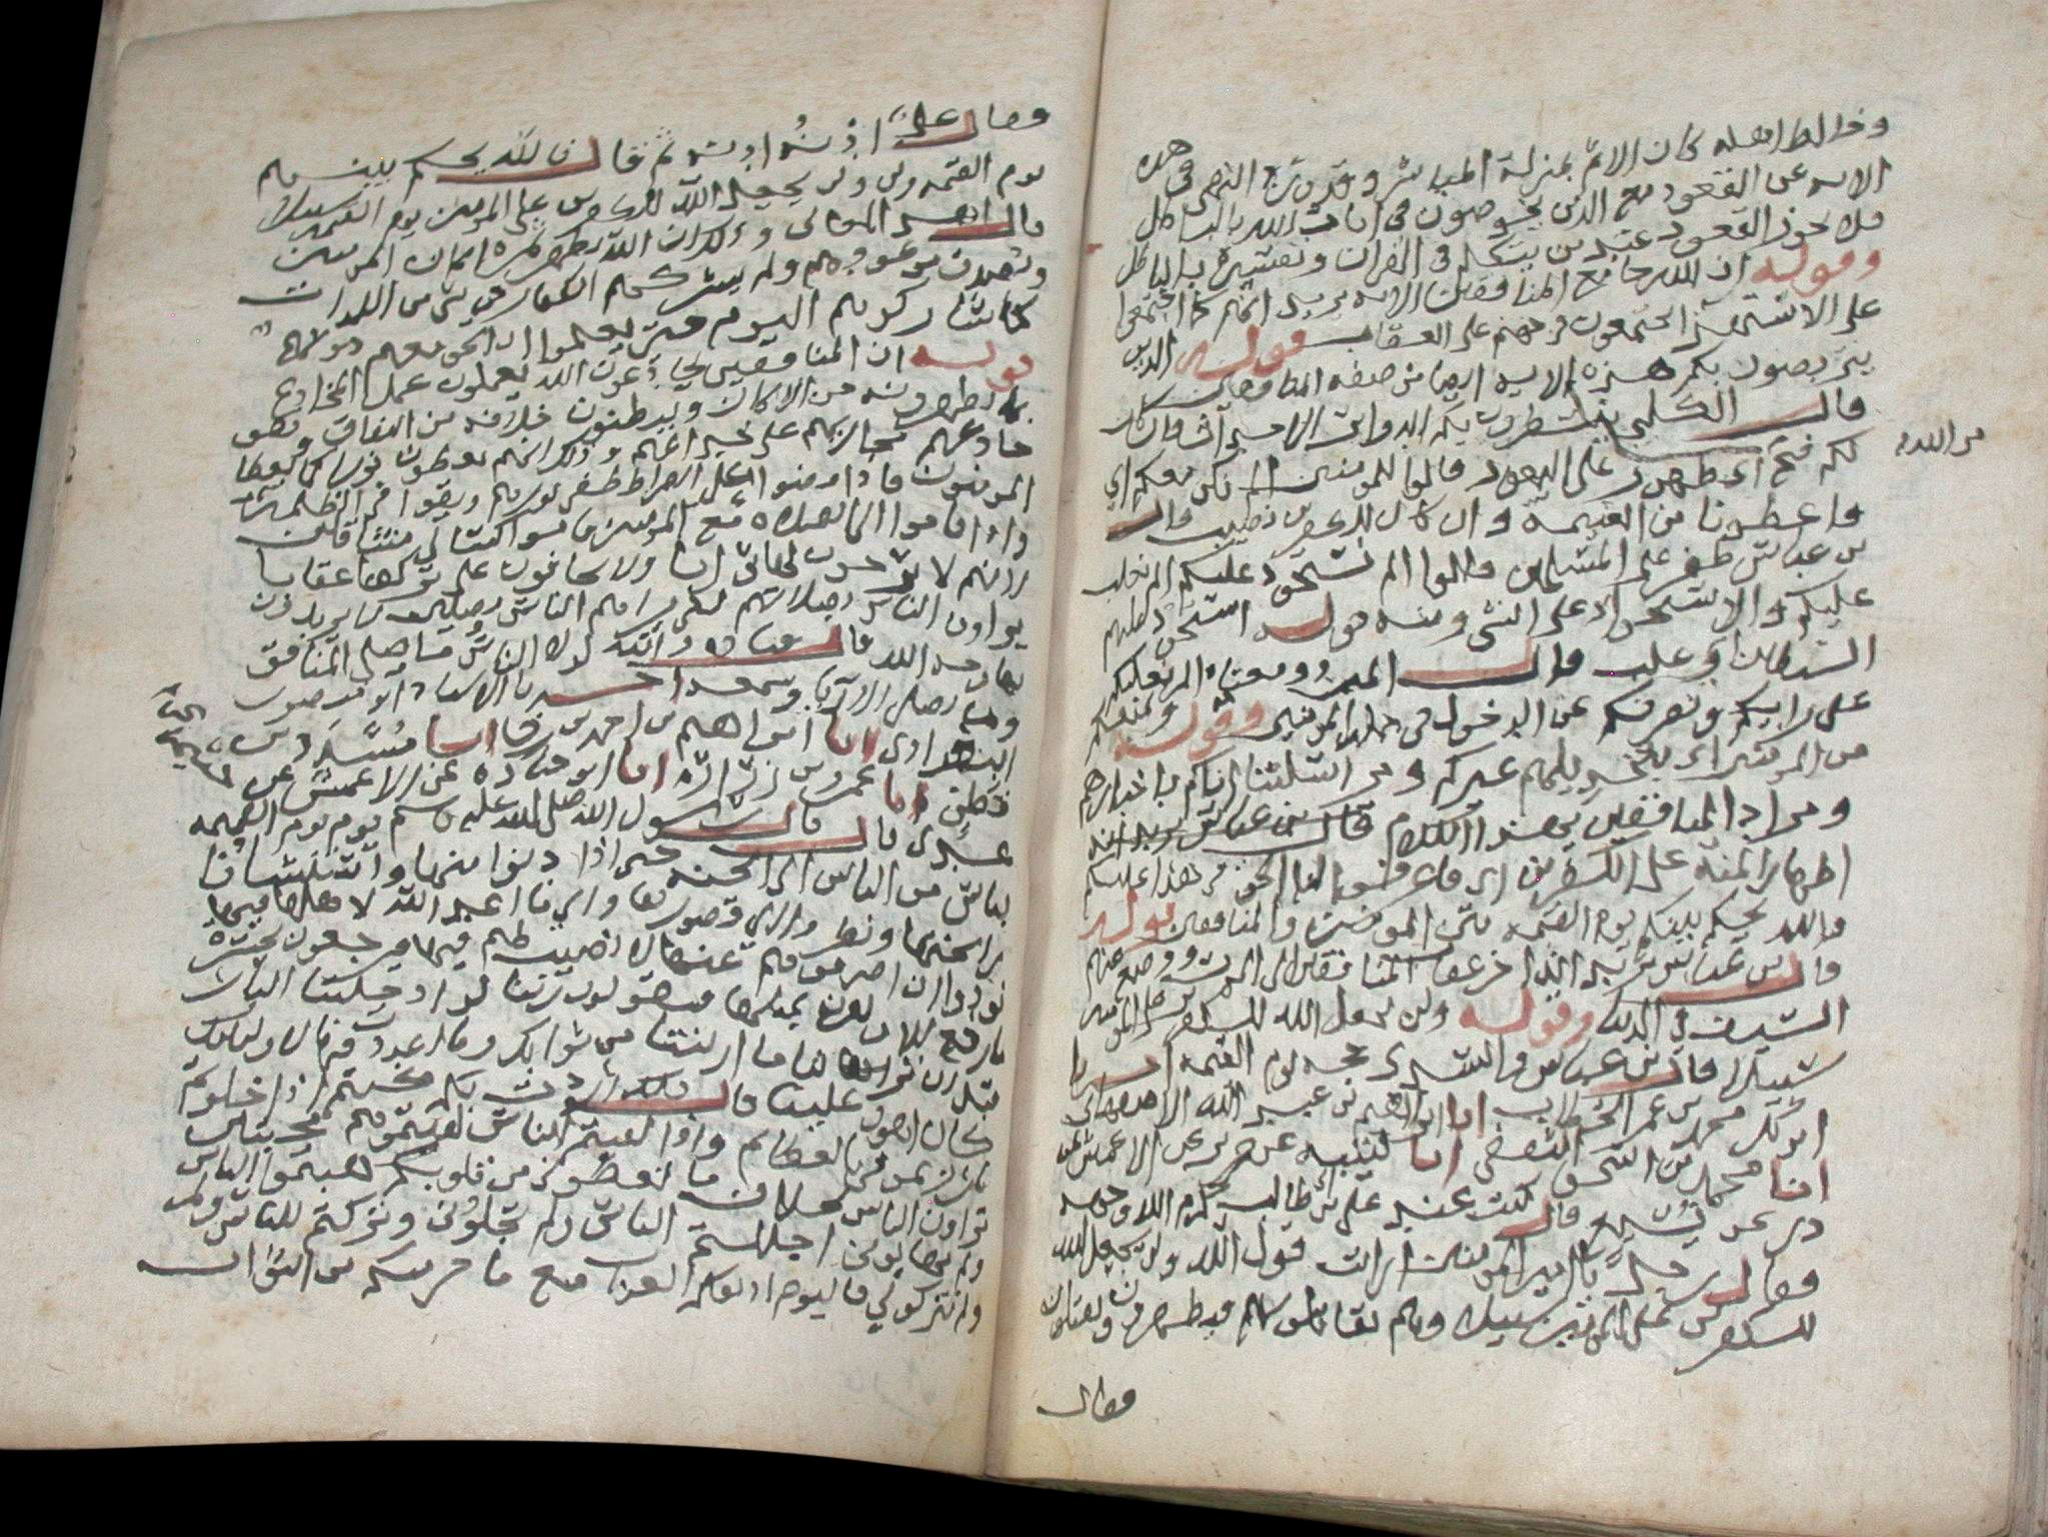 وخالط اهله كان الاثم بمنزلة المباشر وقد وقع النهى فى هذه
الايه عن القعود مع الذين يخوضون فى ايات الله بالباطل
فلا يجوز القعود عند من يتكلم فى القران وتفسيره بالباطل
وقوله ان الله جامع المنافقين الايه يريد انهم كما اجتمعوا
على الاستهزا يجتمعون فى جهنم على العقاب قوله الذين
يتربصون بكم هذه الايه ايضا من صفه المنافقين
قال الكلبى ينتظرون بكم الدواير فان كان
لكم فتح اى ظهور على اليهود قالوا للمومنين الم نكن معكم اى
من الله
فاعطونا من الغنيمة وان كان للكفرين نصيب قال
بن عباس ظفر على المسلمين قالوا الم نستحوذ عليكم الم نغلب
عليكم والاستحواذ على الشى ومنه قوله استحوذ عليهم
الشيطان وغلب قال المبرد ومعناه الم نغلبكم
على رايكم ونصرفكم عن الدخول فى جملة المومنين وقوله ونمنعكم
من المومنين اى بتخذيلهم عنكم ومراسلتنا اياكم باخبارهم
ومراد المنافقين بهذا الكلام قال بن عباس
اظهار المنة على الكفرين اى فاعرفوا لنا الحق فى هذا عليكم
فالله يحكم بينكم يوم القيمه بين المومنين والمنافقين قوله
قال بن عباس يريد انه اخر عقاب المنافقين الى الموت ووضع عنهم
السيف فى الدنيا وقوله ولن يجعل الله للكفرين على المومنين
سبيلا قال بن عباس والسدى حجه يوم القيمه اخبرنا
ابو بكر محمد بن عمر الخشاب انا ابراهيم بن عبد الله الاصبهانى
انا محمد بن اسحق الثقفى انا قتيبه عن جرير عن الاعمش عن
ذر عن يسيع قال كنت عند على بن ابى طالب كرم الله وجهه
فقال رجل يا امير المومنين ارايت قول الله ولن يجعل الله
للكفرين على المومنين سبيلا وهم يقاتلونهم فيظهرون ويقتلون
فقال
فقال على ادنه ادنه ثم قال فالله يحكم بينهم
يوم القيمه ولن يجعل الله للكفرين على المومنين يوم القيمه سبيلا
قال اهل المعانى وذلك ان الله يظهر ثمرة ايمان المومنين
ويصدق موعودهم ولم يشركهم الكفار فى شى من اللذات
كما شاركوهم اليوم حتى يعلموا ان الحق معهم دونهم
قوله ان المنافقين يخادعون الله يعملون عمل المخادع
بما يظهرونه من الايمان ويبطنون خلافه من النفاق وهو
خادعهم مجازيهم على خداعهم وذلك انهم يعطون نورا كما يعطى
المومنون فاذا مضوا على الصراط طفى نورهم وبقوا فى الظلمة
واذا قاموا الى الصلاه مع المومنين قاموا كسالى متثاقلين
لانهم لا يرجون لها ثوابا ولا يخافون على تركها عقابا
يراون الناس بصلاتهم لكى يراهم الناس مصلين لا يريدون
بها وجه الله قال قتاده والله لولا الناس ما صلى المنافق
وما يصلى الا رياء وسمعه اخبرنا الاستاد ابو منصور
البغدادى انا ابراهيم بن احمد بن رجا انا مسدد بن
قطن انا عمرو بن زرارة انا ابو جناده عن الاعمش عن
عدى قال قال رسول الله صلى الله عليه وسلم يومر يوم القيمه
بناس من الناس الى الجنه حتى اذا دنوا منها واستنشقوا
رائحتها ونظروا الى قصورها والى ما اعد الله لاهلها فيها
نودوا ان اصرفوهم عنها لا نصيب لهم فيها فيرجعون بحسرة
ما رجع الاولون بمثلها فيقولون ربنا لو ادخلتنا النار
قبل ان ترينا ما اريتنا من ثوابك وما اعددت فيها لاوليائك
كان اهون علينا قال ذلك اردت بكم كنتم اذا خلوتم
بارزتمونى بالعظائم واذا لقيتم الناس لقيتموهم مخبتين
تراون الناس بخلاف ما تعطونى من قلوبكم هبتم الناس
ولم تهابونى اجللتم الناس ولم تجلونى وتركتم للناس ولم
تتركوا لى فاليوم اذيقكم العذاب مع ما حرمتكم من الثواب